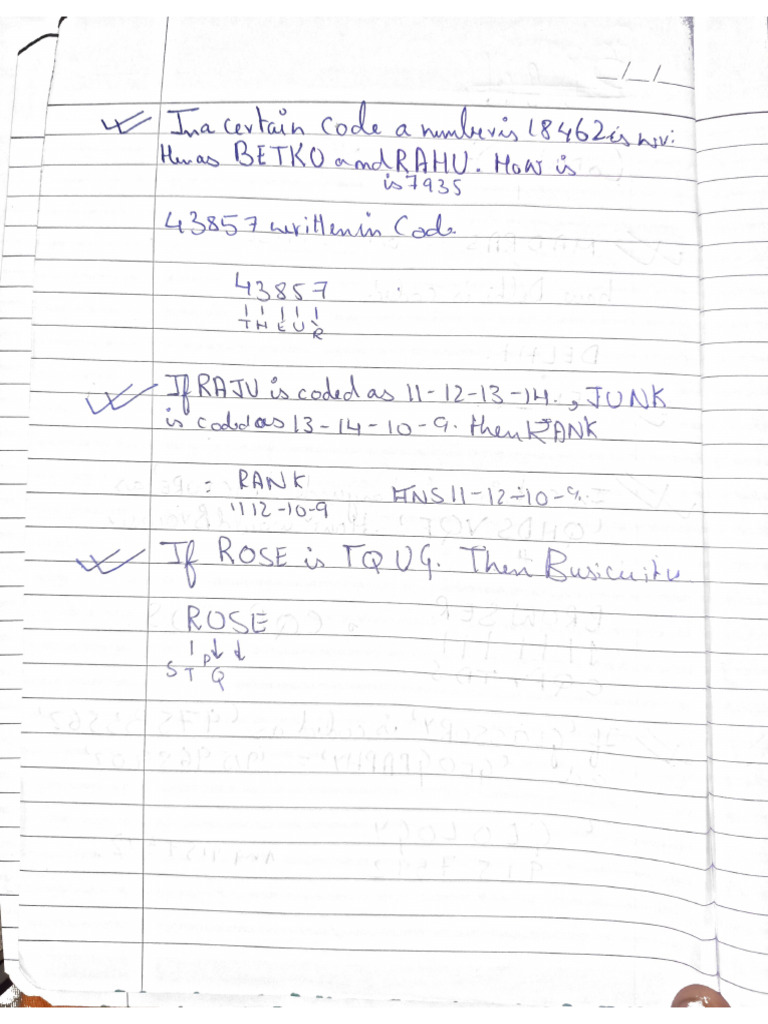 _/_/_
In a certain code a number is 18462 is wri:
tten as BETKO and RAHU. How is
is 7935
43857 written in Code.
43857
T H E U R
If RAJU is coded as 11-12-13-14., JUNK
is coded as 13-14-10-9. then RANK
= RANK
11 12-10-9 ANS 11-12-10-9.
If ROSE is TQUG. Then
ROSE
P
S T Q